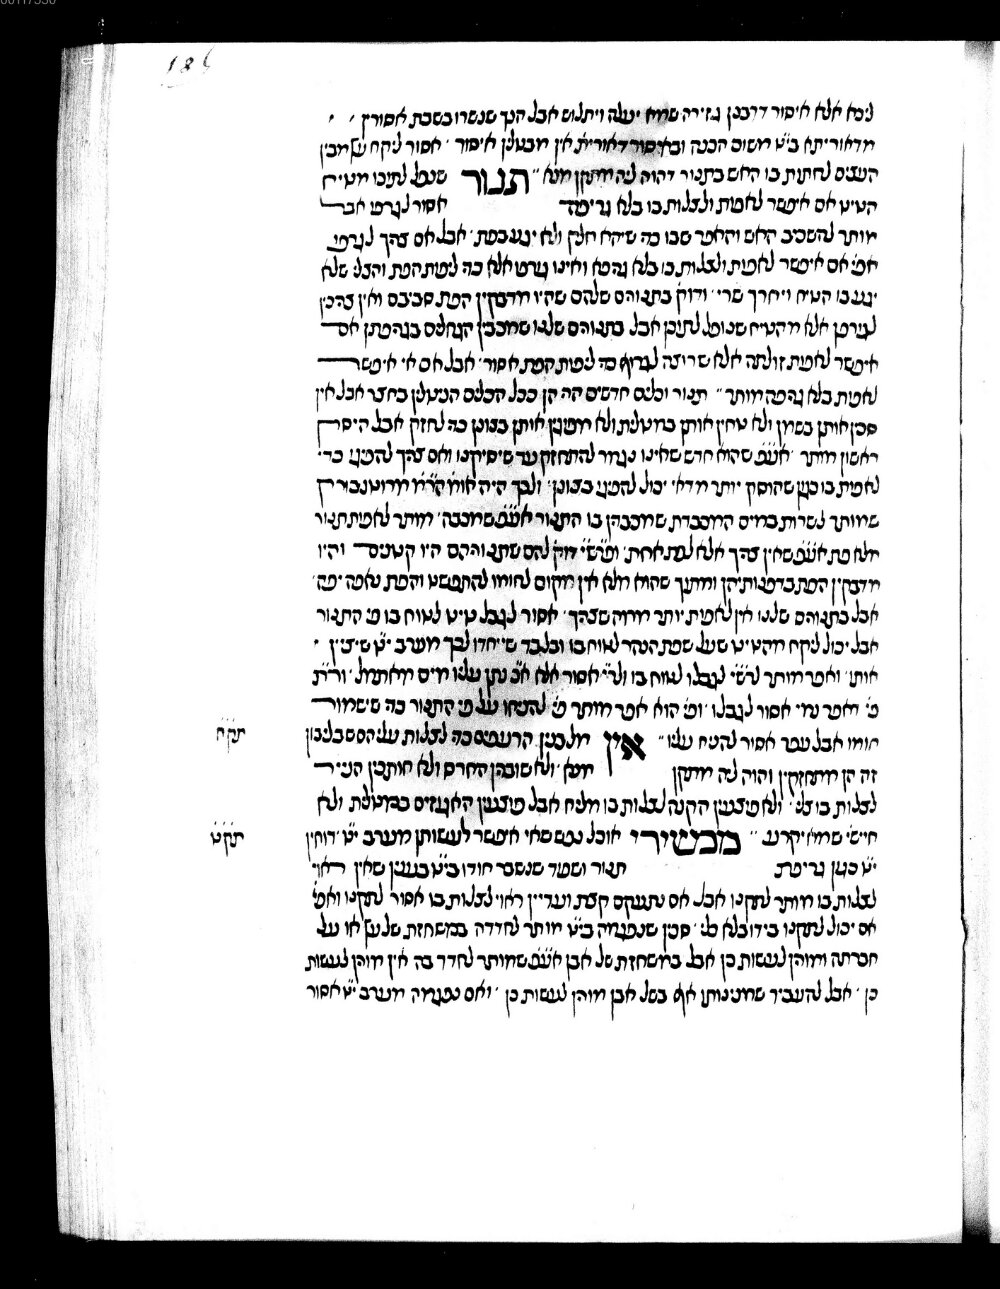 186
ליכא אלא איסור דרבנן גזירה שמא יעלה ויתלוש אבל הנך שנשרו בשבת אסורין
מדאוריתא בי״ט משום הכנה ובאיסור דאורית׳ אין מבטלין איסור ׳ אסור ליקח עץ מבין
העצים לחתות בו האש בתנור דהוה ליה מתקן מנא ״ תנור שנפל לתוכו מטיח
הטיט אם איפשר לאפות ולצלות בו בלא גריפה אסור לגרפו אבל
מותר להשכיב האש והאפר שבו כדי שיהא חלק ולא יגע בפת ׳ אבל אם צריך לגרפו
אפי׳ אם איפשר לאפות ולצלות בו בלא גריפה ואינו גורפו אלא כדי ליפות הפת והצלי שלא
יגע בו הטיח ויחרך שרי ׳ ודוק׳ בתנורים שלהם שהיו מדבקין הפת סביבם ואין צריכין
לגורפן אלא מהטיח שנופל לתוכן אבל בתנורים שלנו שמכבין הגחלים בגריפתן אם
איפשר לאפות זולתה אלא שרוצה לגרוף כדי ליפות הפת אסור ׳ אבל אם אי איפשר
לאפות בלא גריפה מותר ״ תנור וכלים חדשים הרי הן ככל הכלים הניטלין בחצר אבל אין
סכין אותן בשמן ולא טחין אותן במטלית ולא מפיגין אותן בצונן כדי לחזק אבל היסק
ראשון מותר ׳ אע״פ שהוא חדש שאינו נגמר להתחזק עד שיסיקנו ואם צריך להפיגו כדי
לאפות בו כגון שהוסק יותר מדאי יכול להפיגו בצונן ׳ ולכך היה אומ׳ הר״מ מרוטנבורק
שמותר לשרות במים המכבדת שמכבדין בו התנור אע״פ שמכבה ׳ מותר לאפות תנור
מלא פת אע״פ שאין צריך אלא לפת אחת ׳ ופרש״י דוק׳ להם שתנוריהם היו קטנים והיו
מדבקין הפת בדפנותיהן ומתוך שהוא מלא אין מקום לחומו להתפשט והפת נאפה יפה
אבל בתנורים שלנו אין לאפות יותר מזה שצריך ׳ אסור לגבל טיט לטוח בו פי התנור
אבל יכול ליקח מהטיט שעל שפת הנהר לטוח בו ובלבד שייחדו לכך מערב י״ט שיכין
אותו ׳ ואפר מותר לרש״י לגבלו לטוח בו ולר״י אסור אלא א״כ נתן עליו מים מאתמול ׳ ור״ת
פי׳ דאפר נמי אסור לגבלו ׳ ופי׳ הוא אפר מותר פי׳ להניחו על פי התנור כדי שישמור
חומו אבל עפר אסור להניח עליו ״ אין מלבנין הרעפים כדי לצלות עליהם שבליבון
תק״ח
זה הן מתחזקין והוה ליה מתקן מנא ׳ ולא שוברין החרס ולא חותכין הנייר
לצלות בו צלי ׳ ולא פוצעין הקנה לצלות בו מליח אבל פוצעין האגוזים במטלית ולא
חיישי׳ שמא יקרע ״ מכשירי אוכל נפש שאי איפשר לעשותן מערב י״ט דוחין
תק״ט
י״ט כגון גריפת תנור ושפוד שנשבר חודו בי״ט בענין שאין ראוי
לצלות בו מותר לתקנו אבל אם נתעקם קצת ועדיין ראוי לצלות בו אסור לתקנו ואפי׳
אם יכול לתקנו בידו בלא כלי ׳ סכין שנפגמה בי״ט מותר לחדדה במשחזת של עץ או על
חברתה ומורין לעשות כן אבל במשחזת של אבן אע״פ שמותר לחדד בה אין מורין לעשות
כן ׳ אבל להעביר שמנינותן אף בשל אבן מורין לעשות כן ׳ ואם נפגמה מערב י״ט אסור